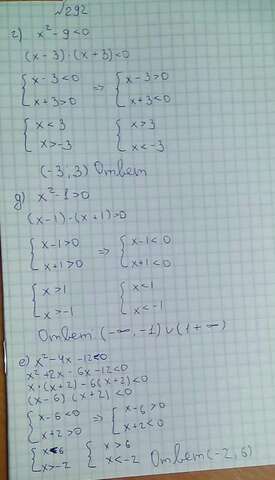 №292
г) x² - 9 < 0
(x - 3) · (x + 3) < 0
{ x - 3 < 0 ⇒ { x - 3 > 0
{ x + 3 > 0 { x + 3 < 0
{ x < 3 { x > 3
{ x > -3 { x < -3
(-3; 3) Ответ
д) x² - 1 > 0
(x - 1) · (x + 1) > 0
{ x - 1 > 0 ⇒ { x - 1 < 0
{ x + 1 > 0 { x + 1 < 0
{ x > 1 { x < 1
{ x > -1 { x < -1
Ответ (-∞, -1) ∪ (1 + ∞)
е) x² - 4x - 12 < 0
x² + 2x - 6x - 12 < 0
x · (x + 2) - 6(x + 2) < 0
(x - 6) (x + 2) < 0
{ x - 6 < 0 ⇒ { x - 6 > 0
{ x + 2 > 0 { x + 2 < 0
{ x < 6 { x > 6
{ x > -2 { x < -2 Ответ (-2; 6)